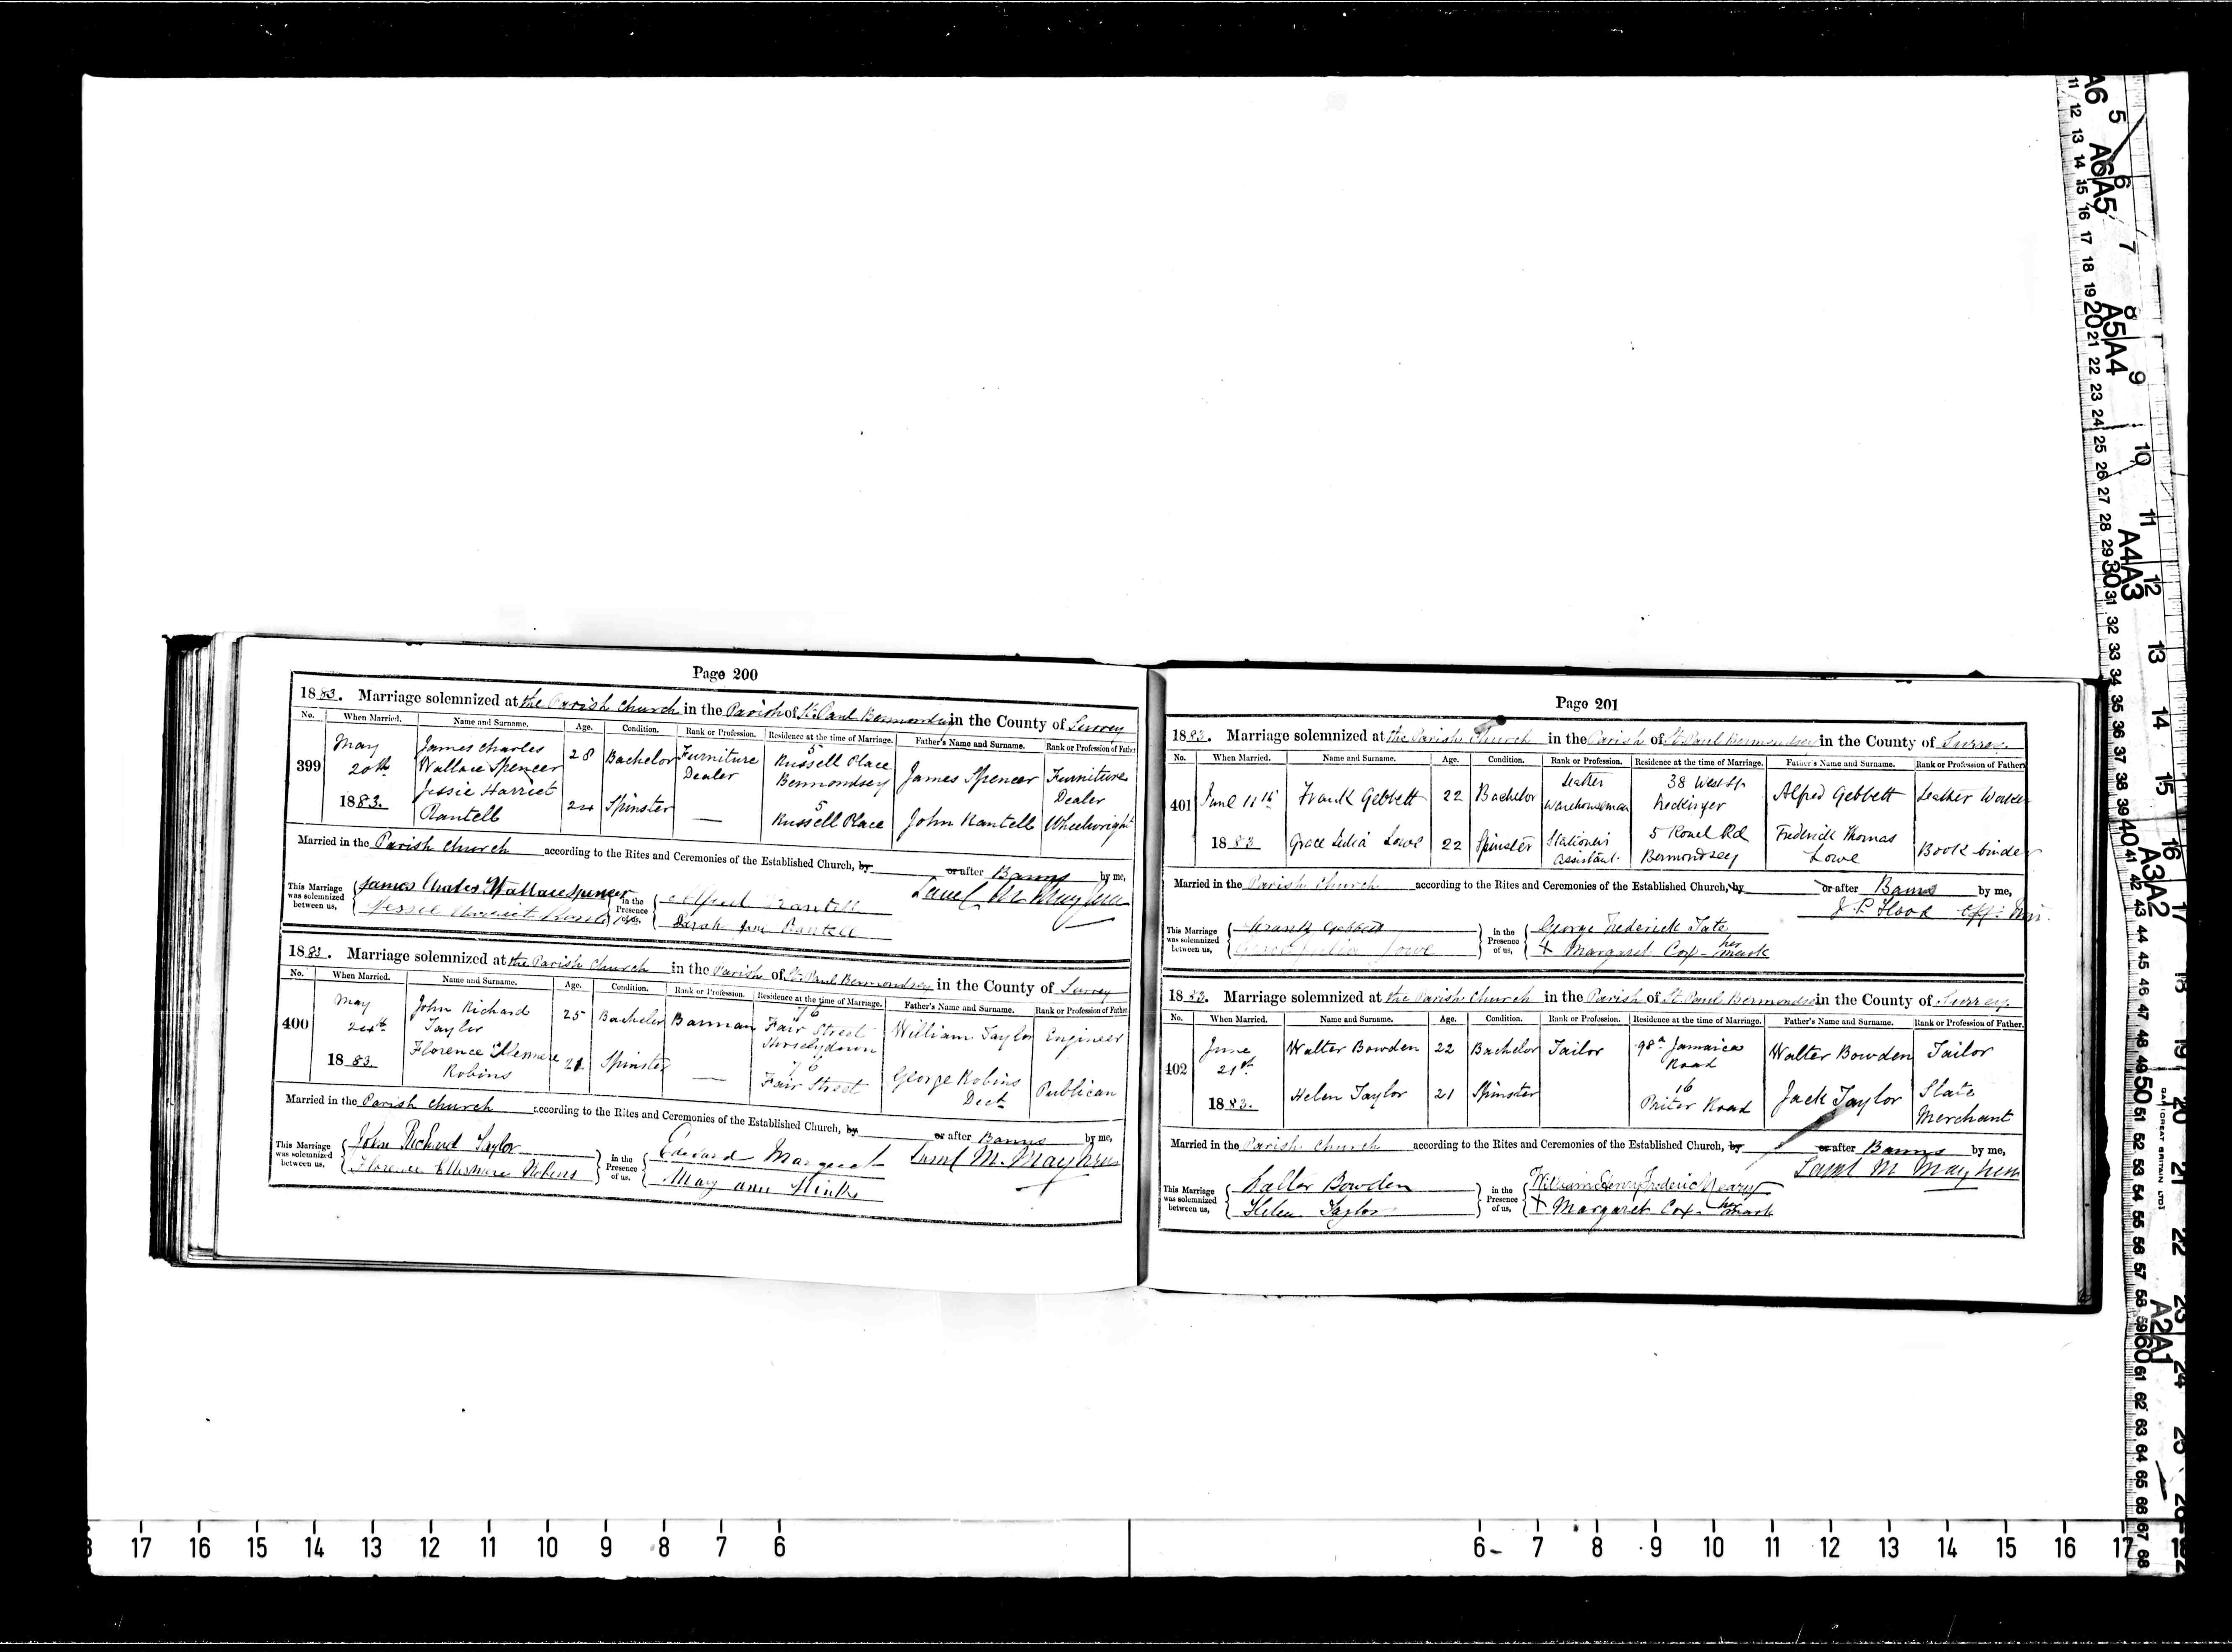 Page 200
1883. Marriage solemnized at the Parish Church in the Parish of St. Paul Bermondsey in the County of Surrey
No. When Married. Name and Surname. Age. Condition. Rank or Profession. Residence at the time of Marriage. Father's Name and Surname. Rank or Profession of Father
399 May 20th 1883. James Charles Wallace Spencer 28 Bachelor Furniture Dealer 5 Russell Place Bermondsey James Spencer Furniture Dealer
Jessie Harriet Rantell 24 Spinster — 5 Russell Place John Rantell Wheelwright
Married in the Parish Church according to the Rites and Ceremonies of the Established Church, by or after Banns by me,
This Marriage was solemnized between us, James Charles Wallace Spencer in the Presence of us, Alfred Rantell
Jessie Harriet Rantell Sarah Jane Rantell
1883. Marriage solemnized at the Parish Church in the Parish of St. Paul Bermondsey in the County of Surrey
No. When Married. Name and Surname. Age. Condition. Rank or Profession. Residence at the time of Marriage. Father's Name and Surname. Rank or Profession of Father
400 May 24th 1883. John Richard Taylor 25 Bachelor Barman 76 Fair Street Horselydown William Taylor Engineer
Florence Ellesmere Robins 21 Spinster — 76 Fair Street George Robins Decd Publican
Married in the Parish Church according to the Rites and Ceremonies of the Established Church, by or after Banns by me,
This Marriage was solemnized between us, John Richard Taylor in the Presence of us. Edward Margaret Saml M. Mayhew
Florence Ellesmere Robins Mary Ann
Page 201
1883. Marriage solemnized at the Parish Church in the Parish of St Paul Bermondsey in the County of Surrey
No. When Married. Name and Surname. Age. Condition. Rank or Profession. Residence at the time of Marriage. Father's Name and Surname. Rank or Profession of Father
401 June 11th 1883 Frank Gebbett 22 Bachelor Leather Warehouseman 38 West St Neckinger Alfred Gebbett Leather Worker
Grace Julia Lowe 22 Spinster Stationer's Assistant 5 Rouel Rd Bermondsey Frederick Thomas Lowe Book binder
Married in the Parish Church according to the Rites and Ceremonies of the Established Church, by or after Banns by me,
J. P. Hood Offg Min.
This Marriage was solemnized between us, Frank Gebbett in the Presence of us, George Frederick Tate
Grace Julia Lowe X Margaret Cox her mark
1883. Marriage solemnized at the Parish Church in the Parish of St Paul Bermondsey in the County of Surrey.
No. When Married. Name and Surname. Age. Condition. Rank or Profession. Residence at the time of Marriage. Father's Name and Surname. Rank or Profession of Father.
402 June 21st 1883. Walter Bowden 22 Bachelor Tailor 98a Jamaica Road Walter Bowden Tailor
Helen Taylor 21 Spinster 16 Road Jack Taylor Slate Merchant
Married in the Parish Church according to the Rites and Ceremonies of the Established Church, by or after Banns by me,
Saml M Mayhew
This Marriage was solemnized between us, Walter Bowden in the Presence of us, William Henry Frederick
Helen Taylor X Margaret Cox her mark
17 16 15 14 13 12 11 10 9 8 7 6 6 7 8 9 10 11 12 13 14 15 16 17